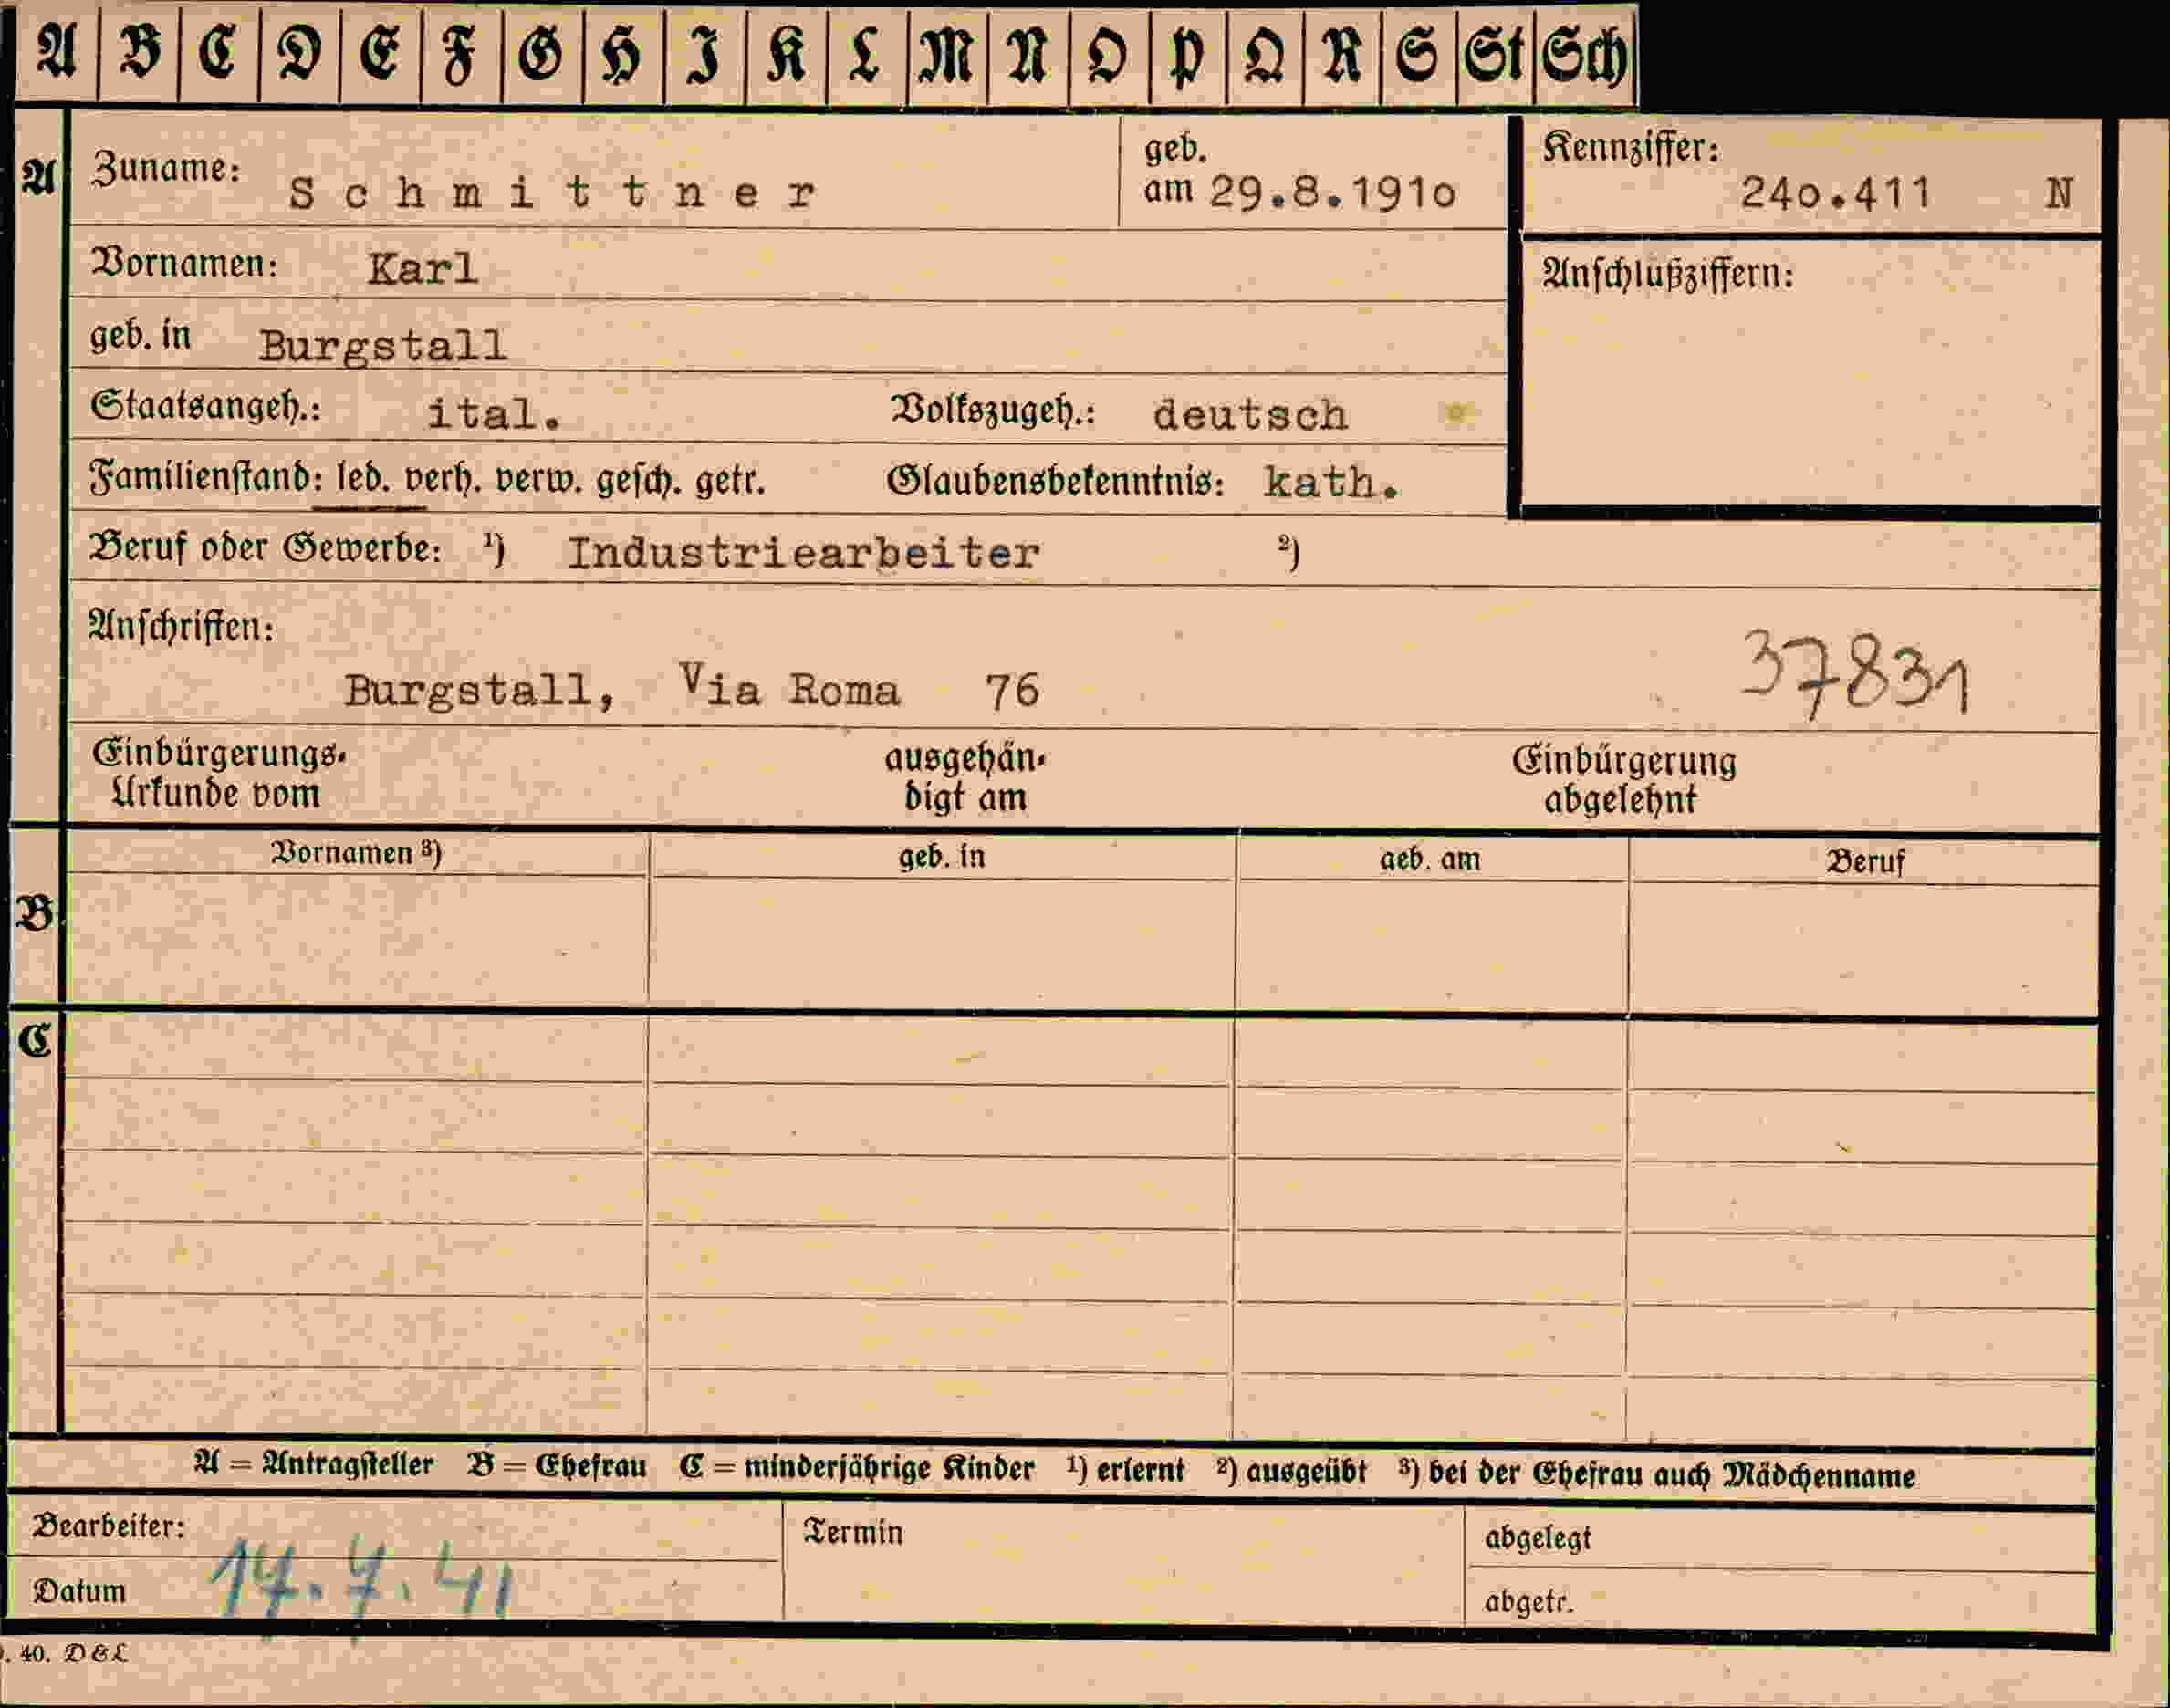 A B C D E F G H I K L M N O P Q R S St Sch
A
Zuname: Schmittner
geb. am 29.8.191o
Kennziffer: 24o.411 N
Vornamen: Karl
Anschlußziffern:
geb. in Burgstall
Staatsangeh.: ital. Volkszugeh.: deutsch
Familienstand: led. verh. verw. gesch. getr. Glaubensbekenntnis: kath.
Beruf oder Gewerbe: ¹) Industriearbeiter ²)
Anschriften:
37831
Burgstall, Via Roma 76
Einbürgerungs- ausgehän- Einbürgerung
Urkunde vom digt am abgelehnt
Vornamen ³) geb. in geb. am Beruf
B
C
A = Antragsteller B = Ehefrau C = minderjährige Kinder ¹) erlernt ²) ausgeübt ³) bei der Ehefrau auch Mädchenname
Bearbeiter: Termin abgelegt
Datum 41 abgetr.
. 40. D & L